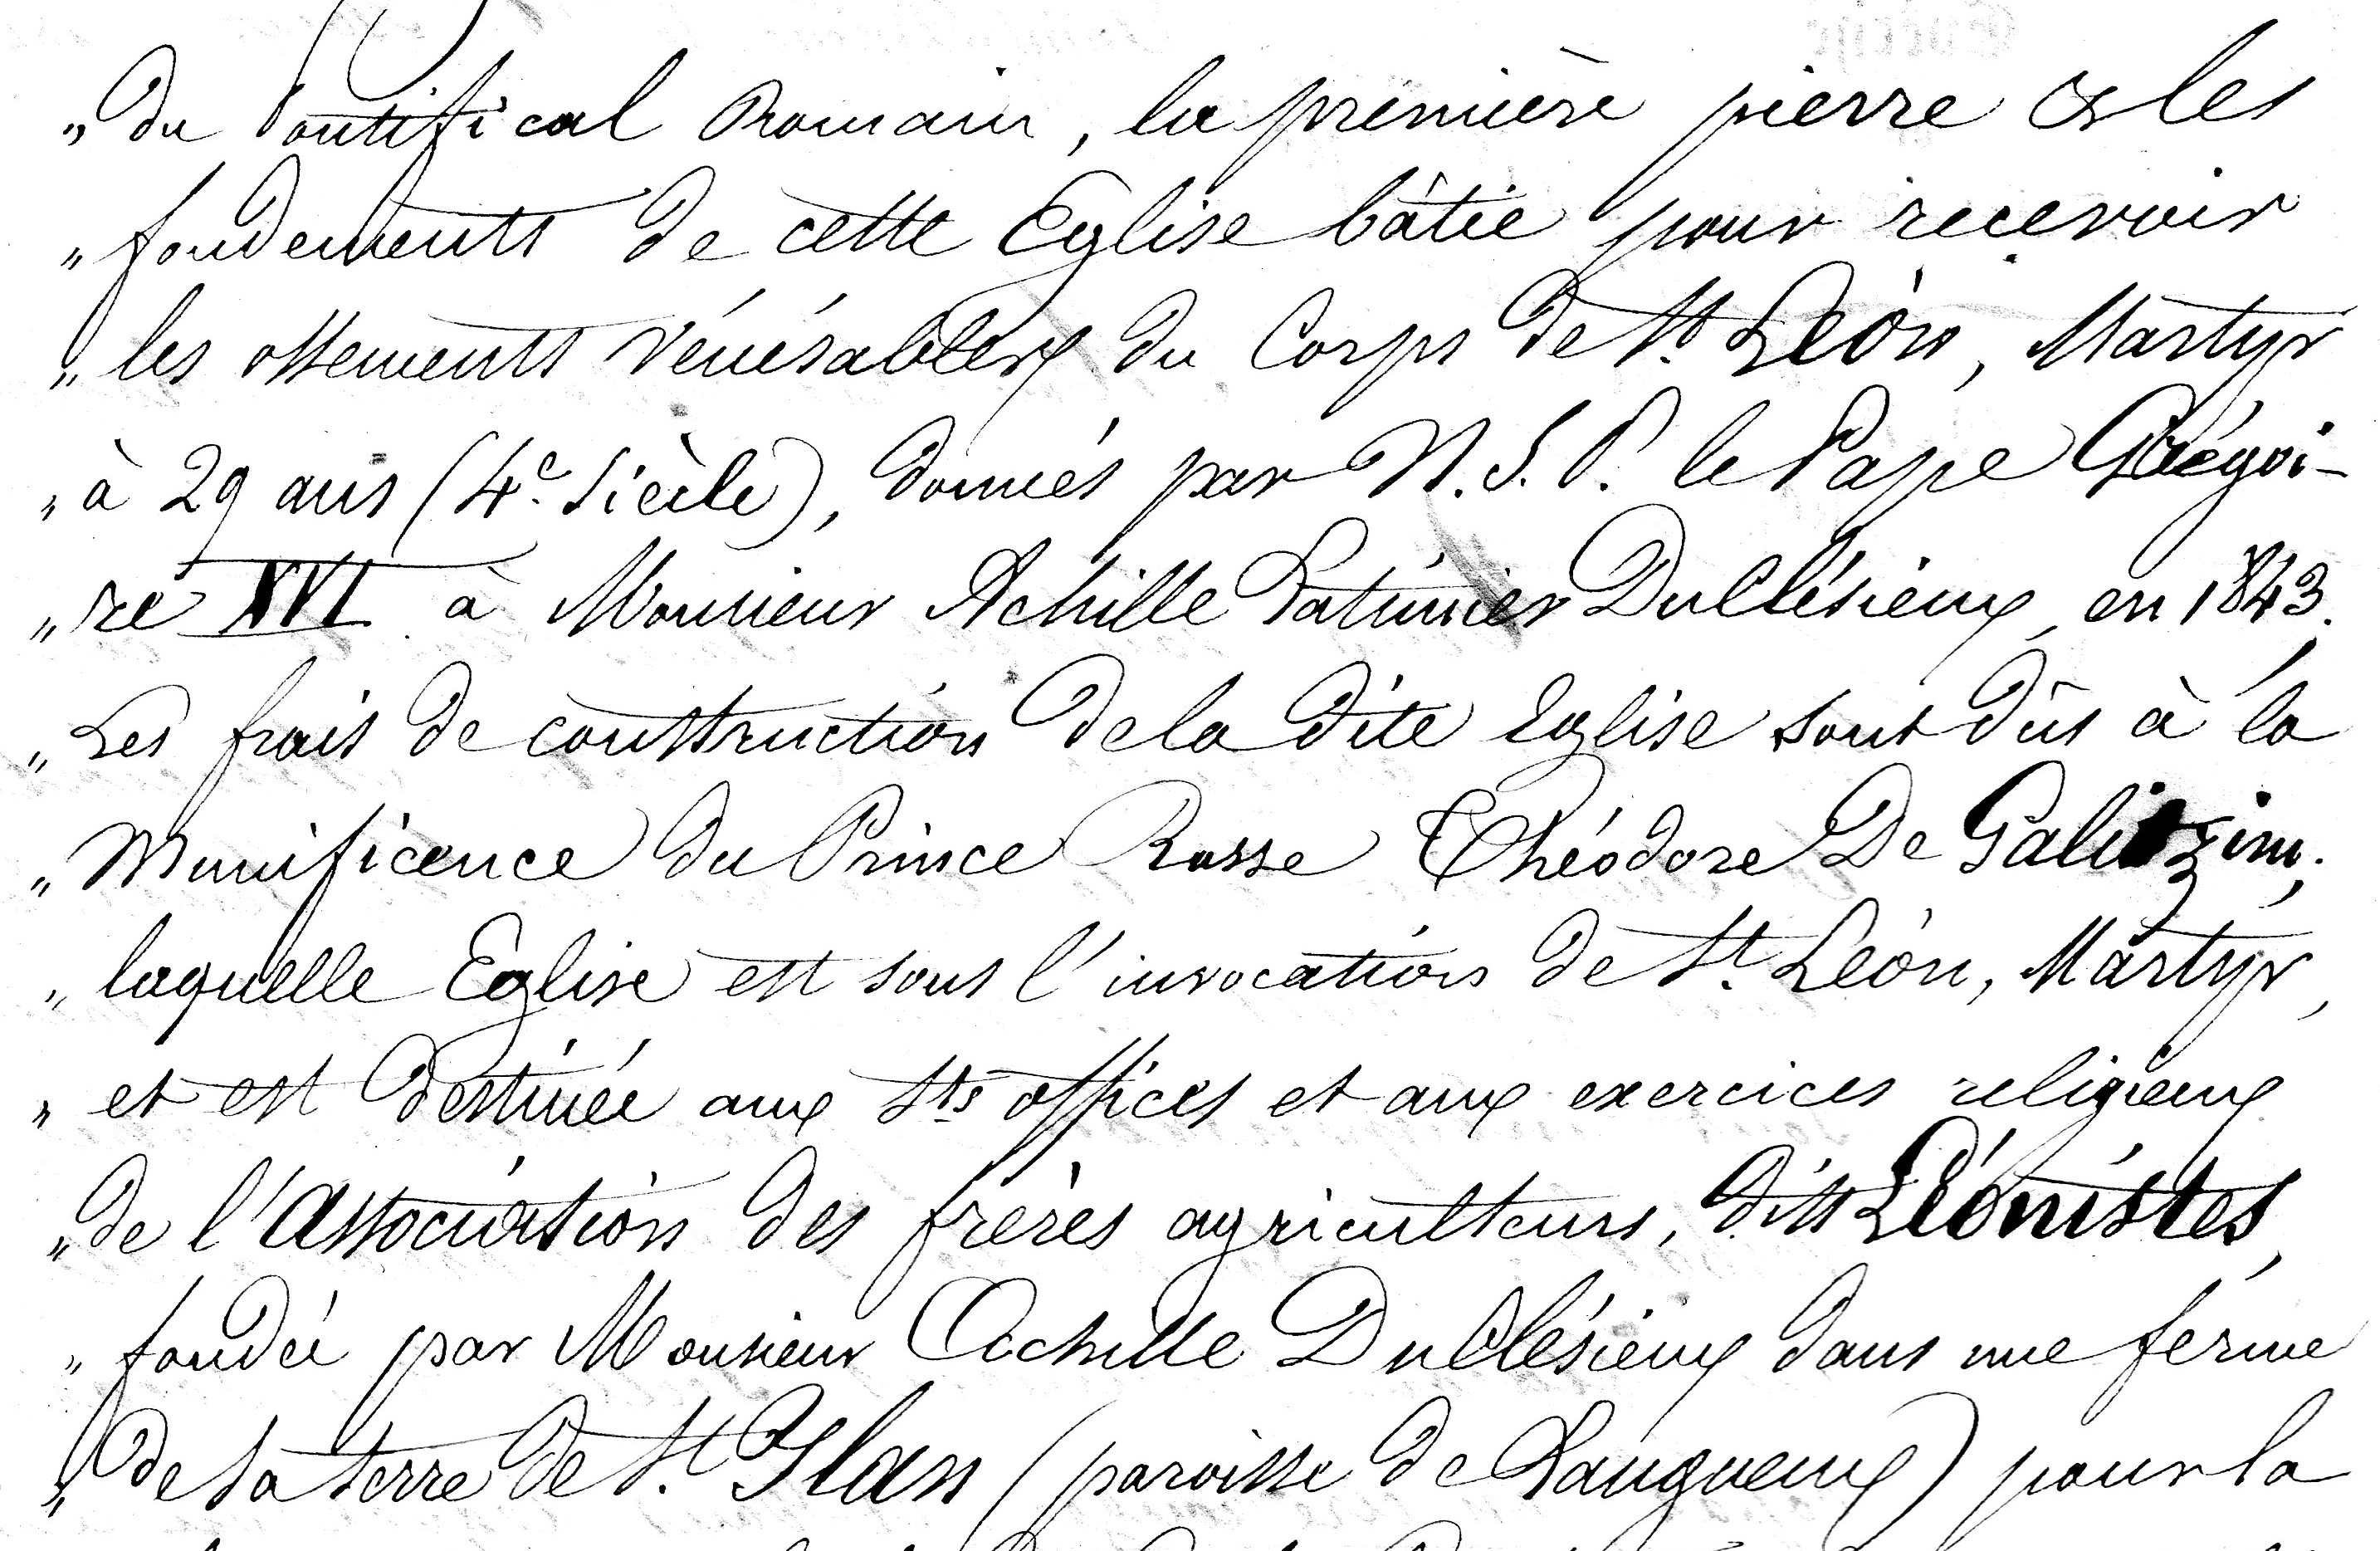 „ du Pontifical Romain, la première pierre & les
„ fondements de cette Eglise bâtie pour recevoir
„ les ossements vénérables du Corps de St. Léon, Martyr
„ à 29 ans (4e. Siècle), donnés par N. S. P. le Pape Grégoi-
„ re XVI à Monsieur Achille Latimier DuClésieux, en 1843.
„ Les frais de construction de la dite Eglise sont dûs à la
„ Munificence du Prince Russe Théodore De Galitzin;
„ laquelle Eglise est sous l'invocation de St. Léon, Martyr,
„ et est destinée aux Sts offices et aux exercices religieux
„ de l'Association des frères agriculteurs, dits Léonistes,
„ fondée par Monsieur Achille DuClésieux dans une ferme
„ de sa terre de St. Ilan (paroisse de Langueux) pour la